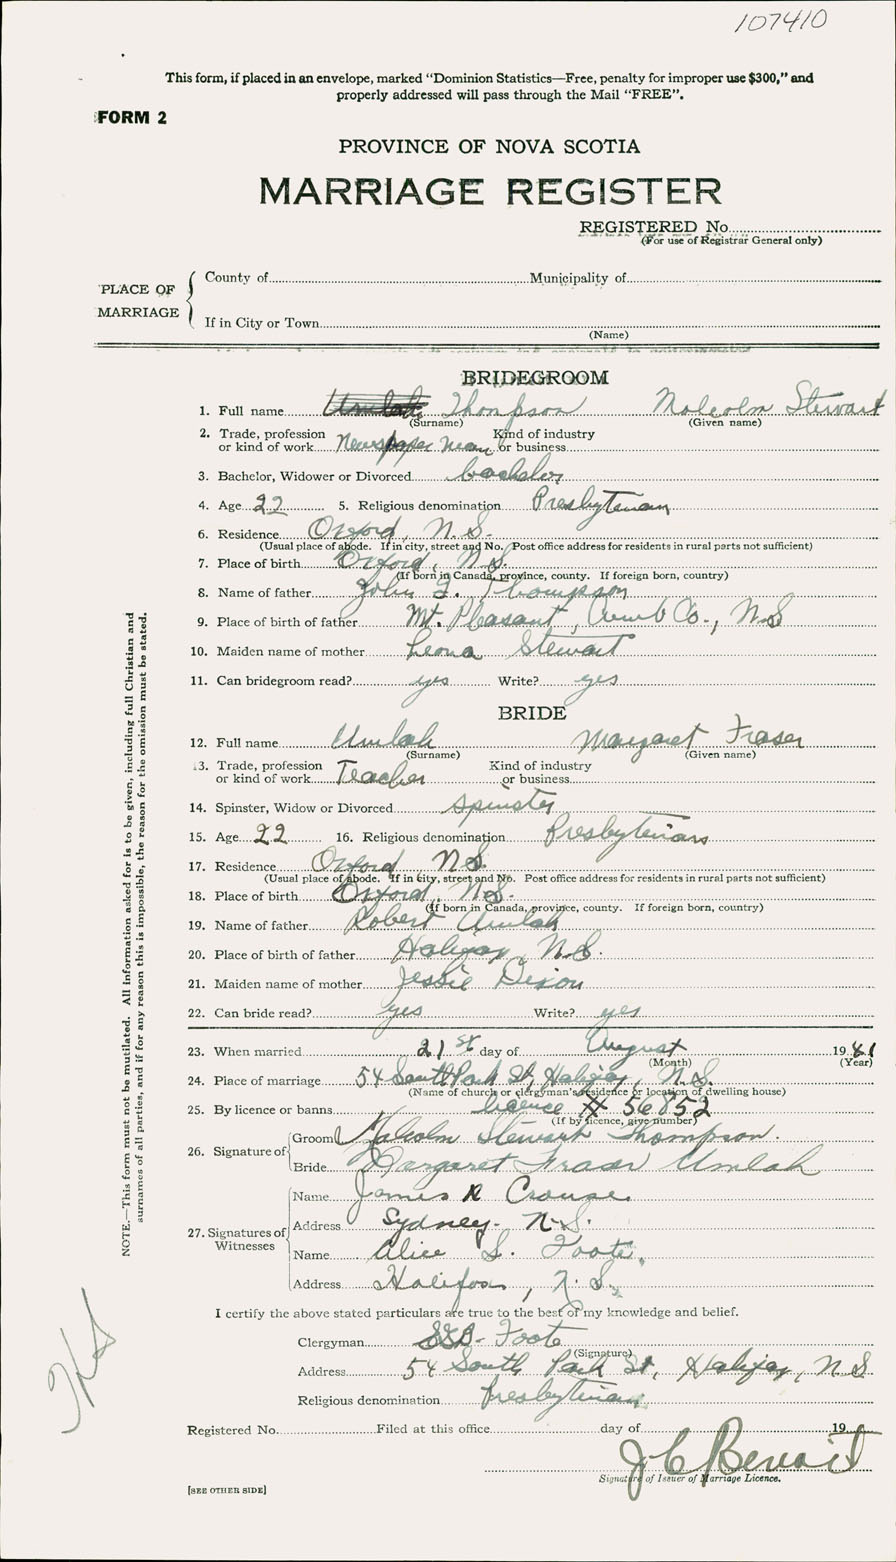 107410
This form, if placed in an envelope, marked “Dominion Statistics—Free, penalty for improper use $300,” and
properly addressed will pass through the Mail “FREE”.
FORM 2
PROVINCE OF NOVA SCOTIA
MARRIAGE REGISTER
REGISTERED No
(For use of Registrar General only)
PLACE OF MARRIAGE
County of Municipality of
If in City or Town
(Name)
BRIDEGROOM
1. Full name Umlah Thompson Malcolm Stewart
(Surname) (Given name)
2. Trade, profession or kind of work Newspaper man Kind of industry or business
3. Bachelor, Widower or Divorced bachelor
4. Age 22 5. Religious denomination Presbyterian
6. Residence Oxford, N.S.
(Usual place of abode. If in city, street and No. Post office address for residents in rural parts not sufficient)
7. Place of birth Oxford, N.S.
(If born in Canada, province, county. If foreign born, country)
8. Name of father John F. Thompson
9. Place of birth of father Mt. Pleasant, Cumb Co., N.S
10. Maiden name of mother Leona Stewart
11. Can bridegroom read? yes Write? yes
BRIDE
12. Full name Umlah Margaret Fraser
(Surname) (Given name)
13. Trade, profession or kind of work Teacher Kind of industry or business
14. Spinster, Widow or Divorced spinster
15. Age 22 16. Religious denomination Presbyterian
17. Residence Oxford N.S.
(Usual place of abode. If in city, street and No. Post office address for residents in rural parts not sufficient)
18. Place of birth Oxford, N.S.
(If born in Canada, province, county. If foreign born, country)
19. Name of father Robert Umlah
20. Place of birth of father Halifax, N.S.
21. Maiden name of mother Jessie Dixon
22. Can bride read? yes Write? yes
23. When married 21st day of August 1941
(Month) (Year)
24. Place of marriage 54 South Park St, Halifax, N.S.
(Name of church or clergyman's residence or location of dwelling house)
25. By licence or banns licence # 56852
(If by licence, give number)
26. Signature of
Groom Malcolm Stewart Thompson.
Bride Margaret Fraser Umlah
27. Signatures of Witnesses
Name James R Crouse.
Address Sydney- N.S.
Name Alice S. Foote,
Address Halifax, N.S.
I certify the above stated particulars are true to the best of my knowledge and belief.
Clergyman Foote
(Signature)
Address 54 South Park St, Halifax, N.S
Religious denomination Presbyterian
Registered No. Filed at this office day of 19
J C Benoit
Signature of Issuer of Marriage Licence.
[SEE OTHER SIDE]
NOTE.—This form must not be mutilated. All information asked for is to be given, including full Christian and
surnames of all parties, and if for any reason this is impossible, the reason for the omission must be stated.